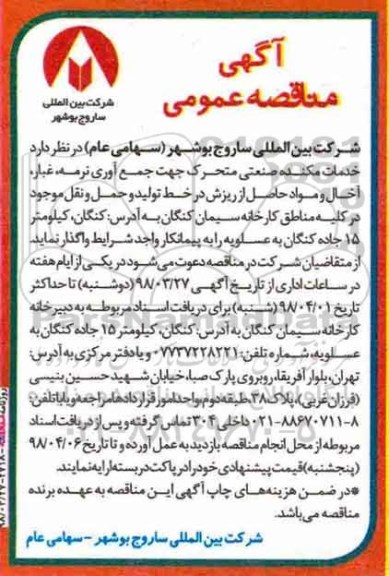 آگهی
مناقصه عمومی
شرکت بین المللی
ساروج بوشهر
شرکت بین المللی ساروج بوشهر (سهامی عام) در نظر دارد
خدمات مکنده صنعتی متحرک جهت جمع آوری نرمه، غبار،
آخال و مواد حاصل از ریزش در خط تولید و حمل و نقل موجود
در کلیه مناطق کارخانه سیمان کنگان به آدرس: کنگان، کیلومتر
۱۵ جاده کنگان به عسلویه را به پیمانکار واجد شرایط واگذار نماید.
از متقاضیان شرکت در مناقصه دعوت می‌شود در یکی از ایام هفته
در ساعات اداری از تاریخ آگهی ۹۸/۰۳/۲۷ (دوشنبه) تا حداکثر
تاریخ ۹۸/۰۴/۰۱ (شنبه) برای دریافت اسناد مربوطه به دبیرخانه
کارخانه سیمان کنگان به آدرس: کنگان، کیلومتر ۱۵ جاده کنگان به
عسلویه، شماره تلفن: ۰۷۷۳۷۲۲۸۲۲۱ و یا دفتر مرکزی به آدرس:
تهران، بلوار آفریقا، روبروی پارک صبا، خیابان شهید حسین بنیسی
(فرزان غربی)، پلاک ۳۸، طبقه دوم واحد امور قراردادها مراجعه و یا با تلفن:
۸-۸۸۶۷۰۷۱۱-۰۲۱ داخلی ۳۰۴ تماس گرفته و پس از دریافت اسناد
مربوطه از محل انجام مناقصه بازدید به عمل آورده و تا تاریخ ۹۸/۰۴/۰۶
(پنجشنبه) قیمت پیشنهادی خود را در پاکت دربسته ارایه نمایند.
*در ضمن هزینه‌های چاپ آگهی این مناقصه به عهده برنده
مناقصه می‌باشد.
شرکت بین المللی ساروج بوشهر - سهامی عام